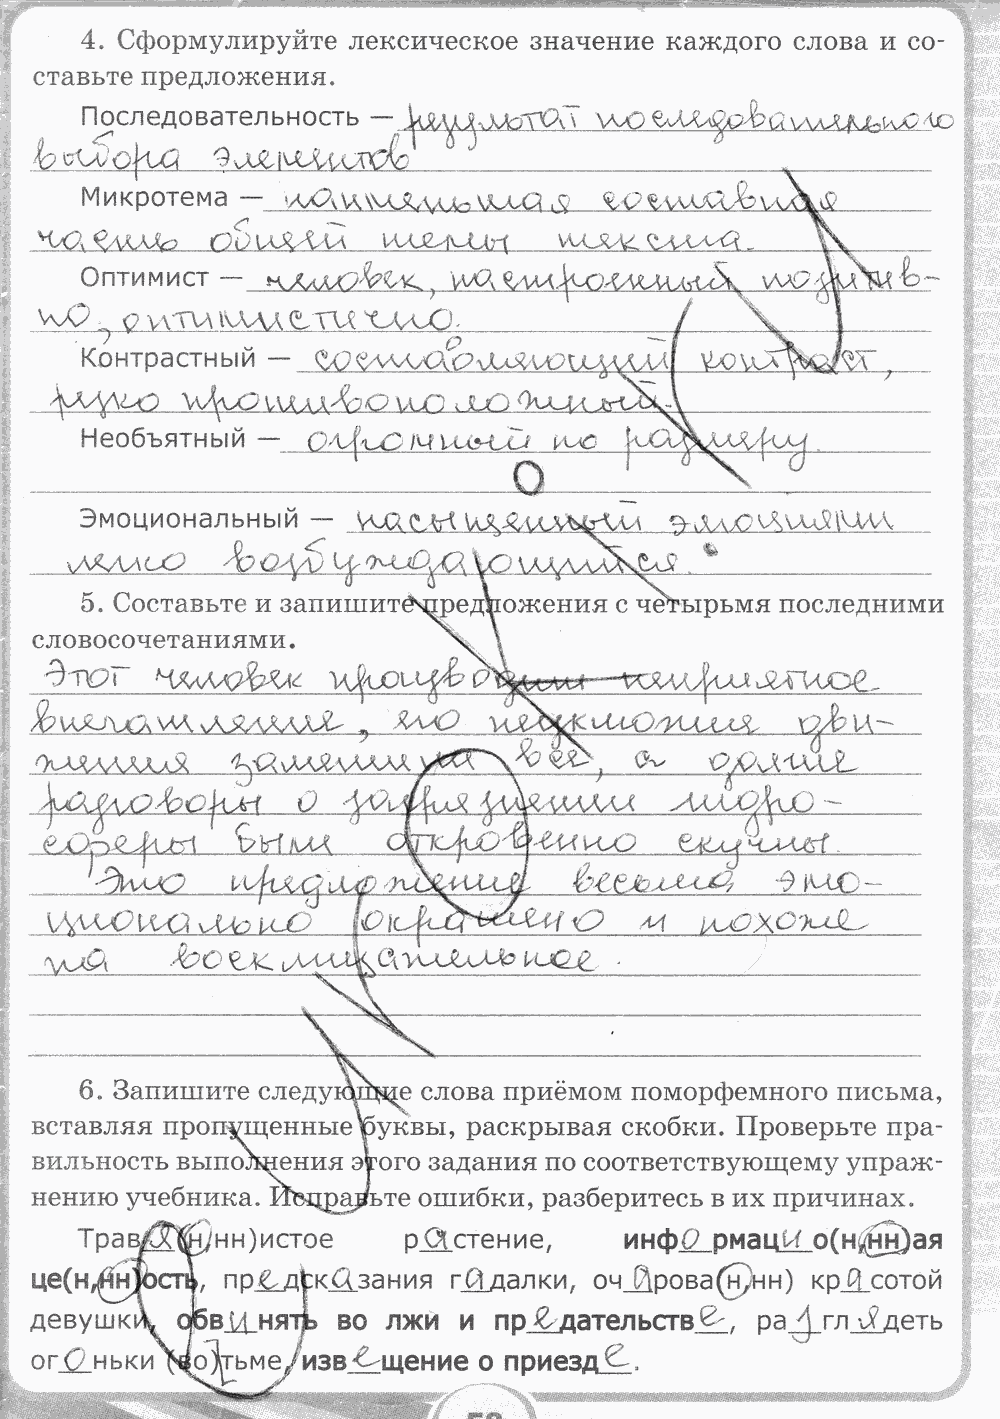 4. Сформулируйте лексическое значение каждого слова и со-
ставьте предложения.
Последовательность — результат последовательного
выбора элементов
Микротема — наименьшая составная
часть общей темы текста.
Оптимист — человек, настроенный позитив-
но, оптимистично.
Контрастный — составляющий контраст,
резко противоположный.
Необъятный — огромный по размеру.
Эмоциональный — насыщенный эмоциями
легко возбуждающийся.
5. Составьте и запишите предложения с четырьмя последними
словосочетаниями.
Этот человек производит неприятное
впечатление, его неуклюжие дви-
жения заметны все, а долгие
разговоры о загрязнении гидро-
сферы были откровенно скучны.
Это предложение весьма эмо-
ционально окрашено и похоже
на восклицательное.
6. Запишите следующие слова приёмом поморфемного письма,
вставляя пропущенные буквы, раскрывая скобки. Проверьте пра-
вильность выполнения этого задания по соответствующему упраж-
нению учебника. Исправьте ошибки, разберитесь в их причинах.
Травя(н,нн)истое растение, информацио(н,нн)ая
це(н,нн)ость, предсказания гадалки, очарова(н,нн) красотой
девушки, обвинять во лжи и предательстве, разглядеть
огоньки (во)тьме, извещение о приезде.